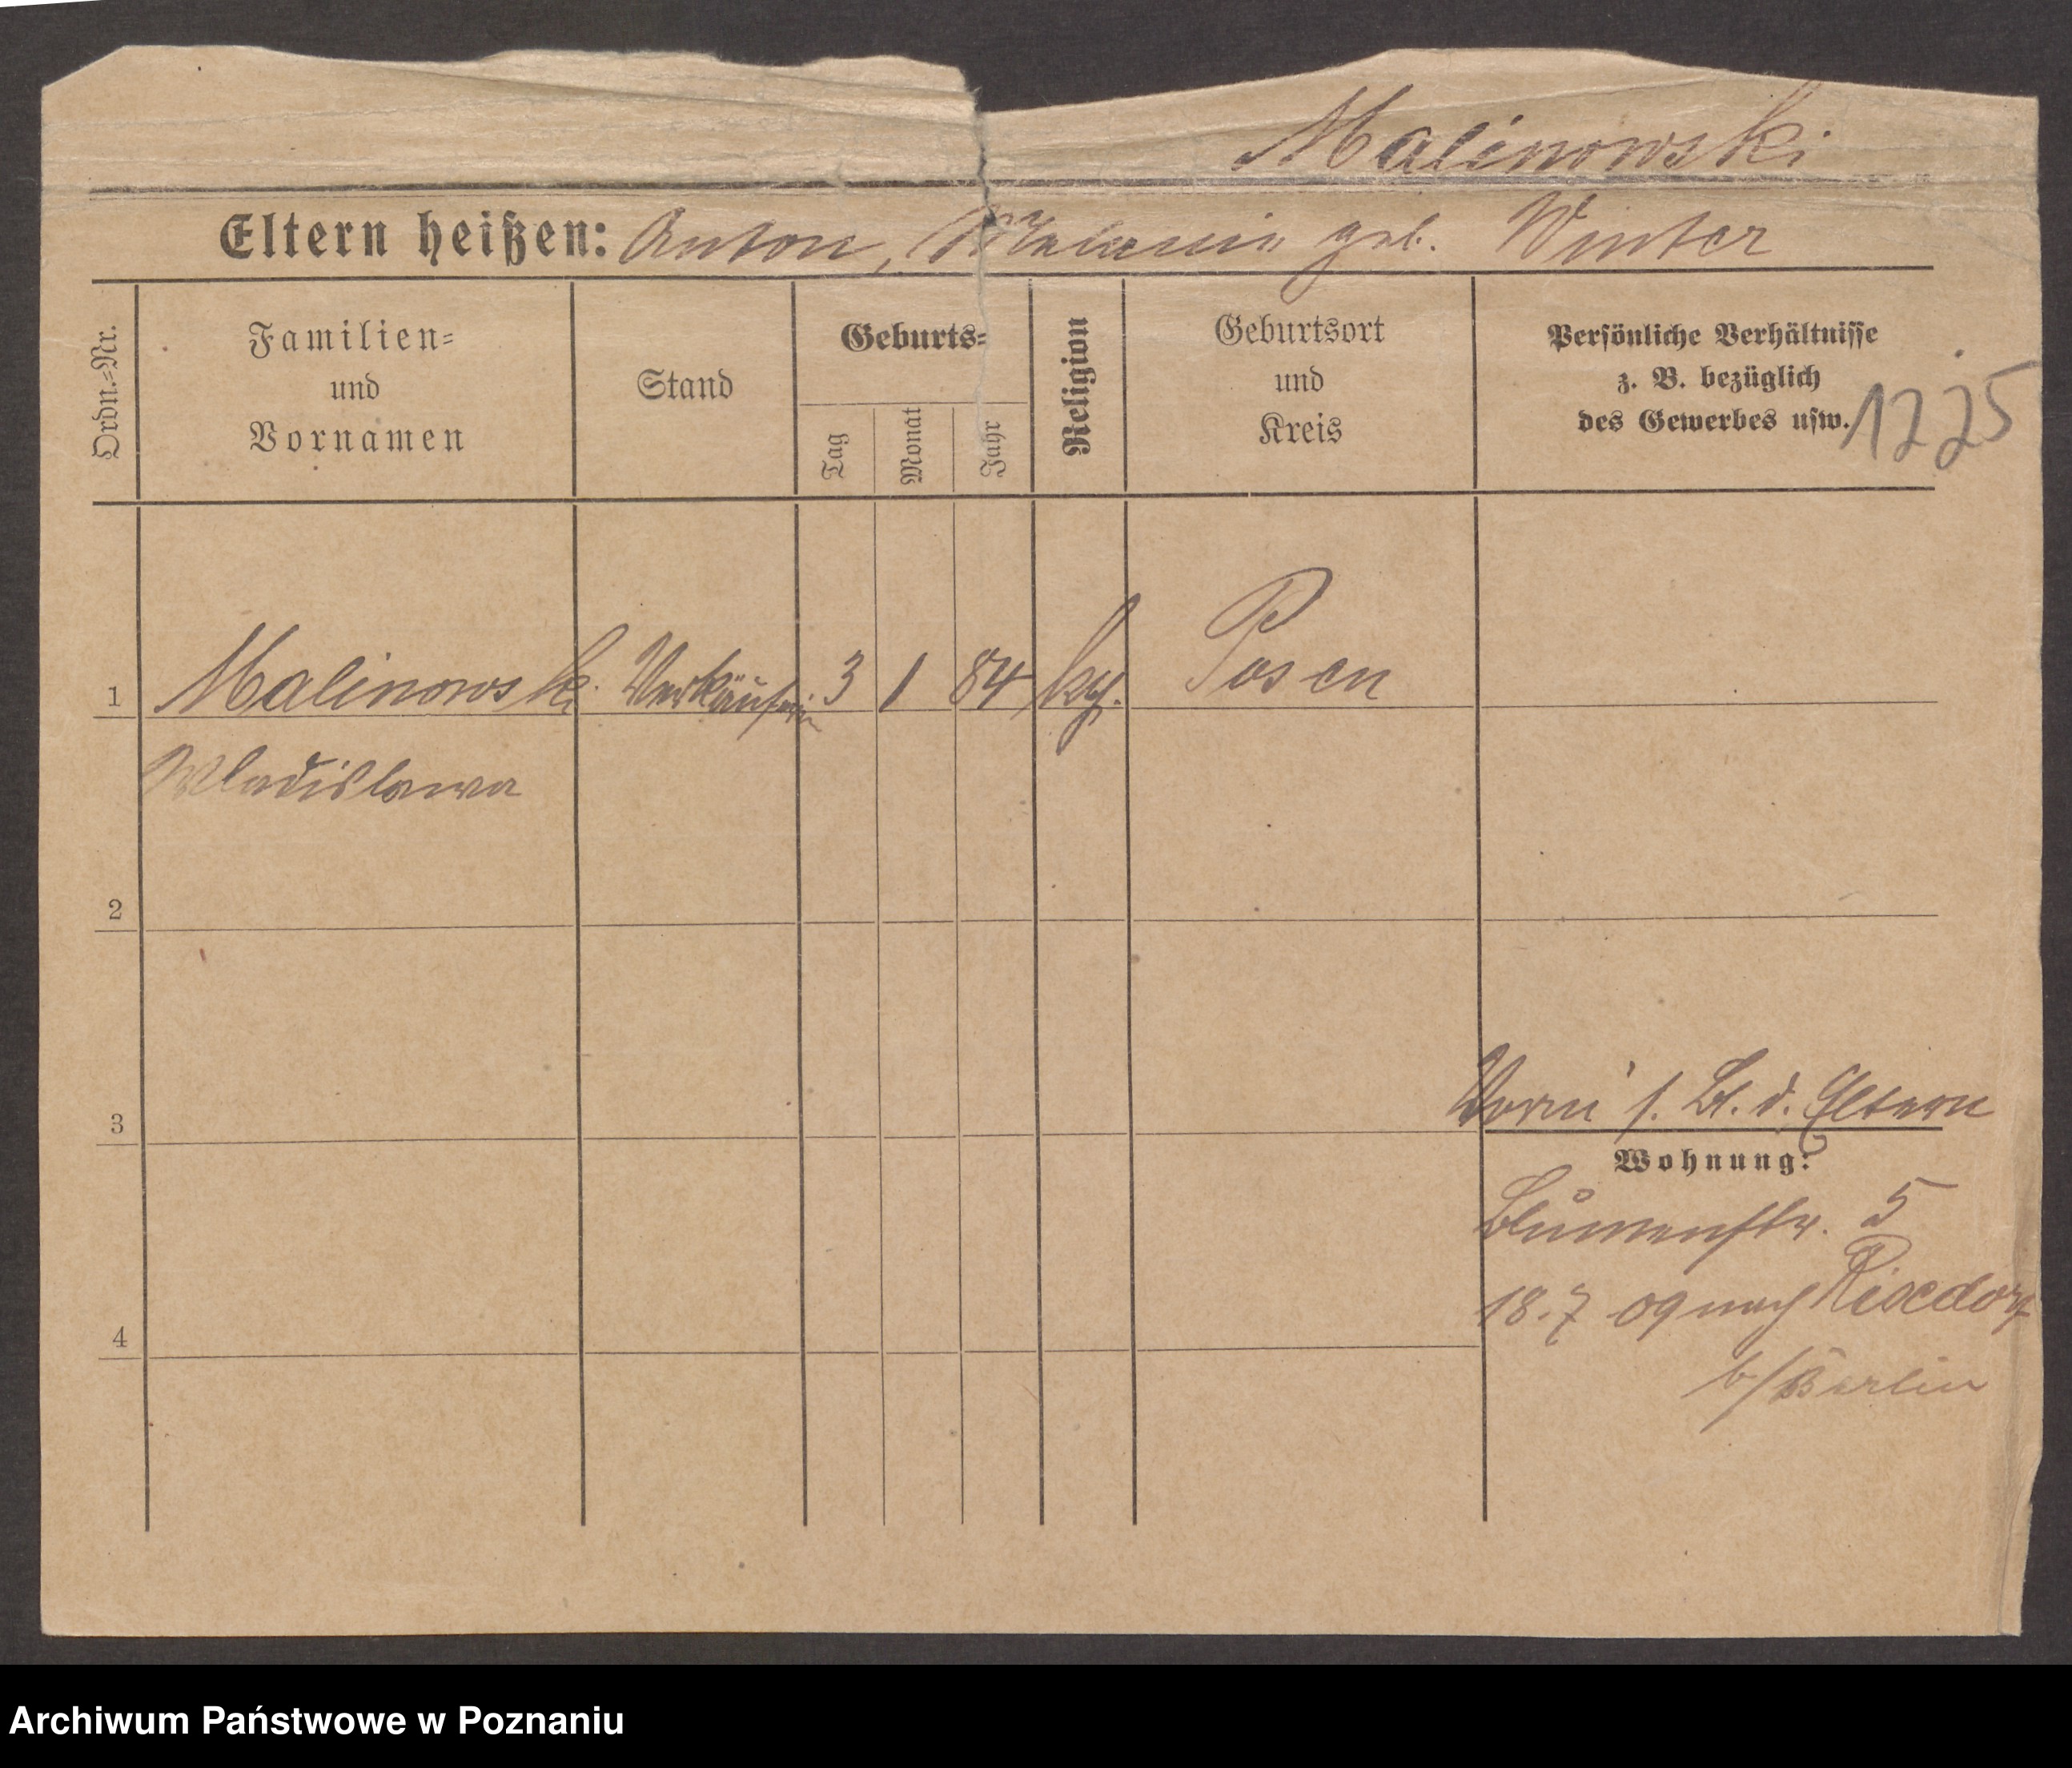 Malinowski
Eltern heißen: Anton, Melanie geb. Winter
Ordn.=Nr.
Familien=
und
Vornamen
Stand
Geburts=
Tag
Monat
Jahr
Religion
Geburtsort
und
Kreis
Persönliche Verhältnisse
z. B. bezüglich
des Gewerbes usw.
1225
1 Malinowski Verkäuferin 3 1 84 kg. Posen
Wladislawa
2
3
s. Bl. d. Eltern
Wohnung:
Blumenstr. 5
18.7 09 nach Rixdorf
b/Berlin
4
Archiwum Państwowe w Poznaniu